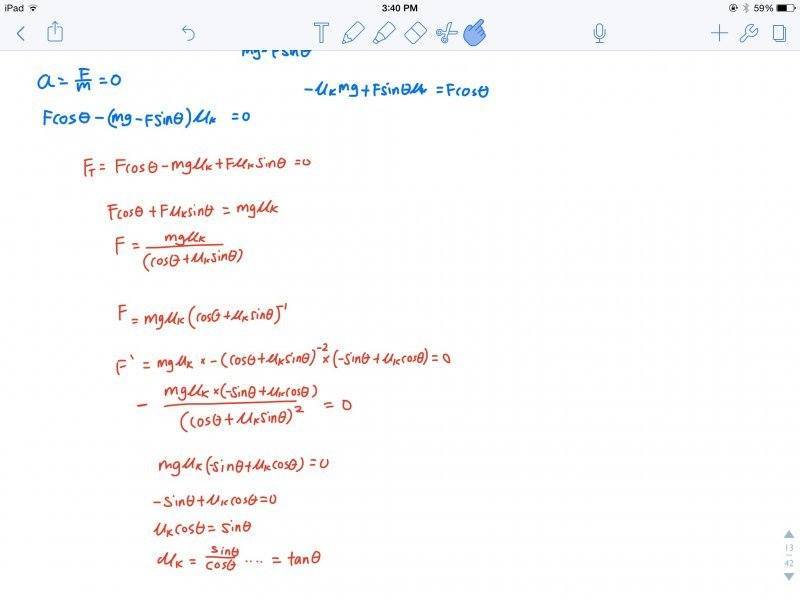 iPad 3:40 PM 59%
T
mg-Fsinθ
a = F/m = 0
-μₖmg+Fsinθμₖ = Fcosθ
Fcosθ - (mg-Fsinθ)μₖ = 0
F_T = Fcosθ - mgμₖ + Fμₖsinθ = 0
Fcosθ + Fμₖsinθ = mgμₖ
F = mgμₖ/(cosθ+μₖsinθ)
F = mgμₖ(cosθ+μₖsinθ)⁻¹
F' = mgμₖ × -(cosθ+μₖsinθ)⁻² × (-sinθ+μₖcosθ) = 0
- mgμₖ×(-sinθ+μₖcosθ)/(cosθ+μₖsinθ)² = 0
mgμₖ(-sinθ+μₖcosθ) = 0
-sinθ+μₖcosθ=0
μₖcosθ = sinθ
μₖ = sinθ/cosθ .... = tanθ
13
42